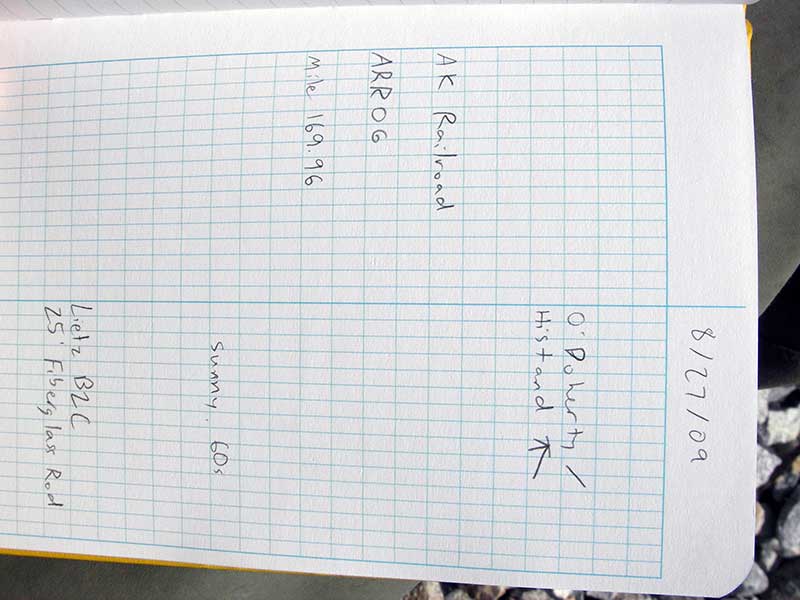 8/27/09
O'Doherty /
Histand ↖
AK Railroad
ARR06
Mile 169.96
Sunny. 60s
Lietz B2C
25' Fiberglass Rod